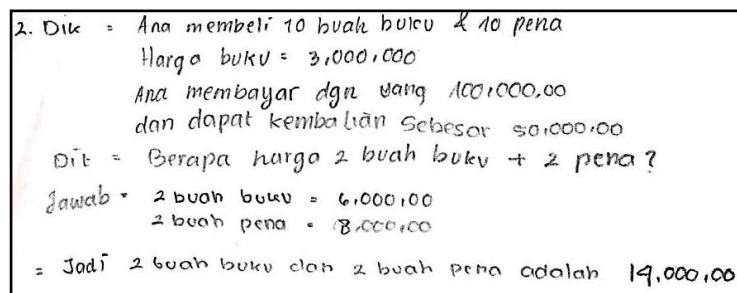 2. Dik = Ana membeli 10 buah buku & 10 pena
Harga buku = 3,000,000
Ana membayar dgn uang 100,000,00
dan dapat kembalian sebesar 50,000,00
Dit = Berapa harga 2 buah buku + 2 pena?
Jawab = 2 buah buku = 6,000,00
2 buah pena = 8,000,00
= Jadi 2 buah buku dan 2 buah pena adalah 14,000,00